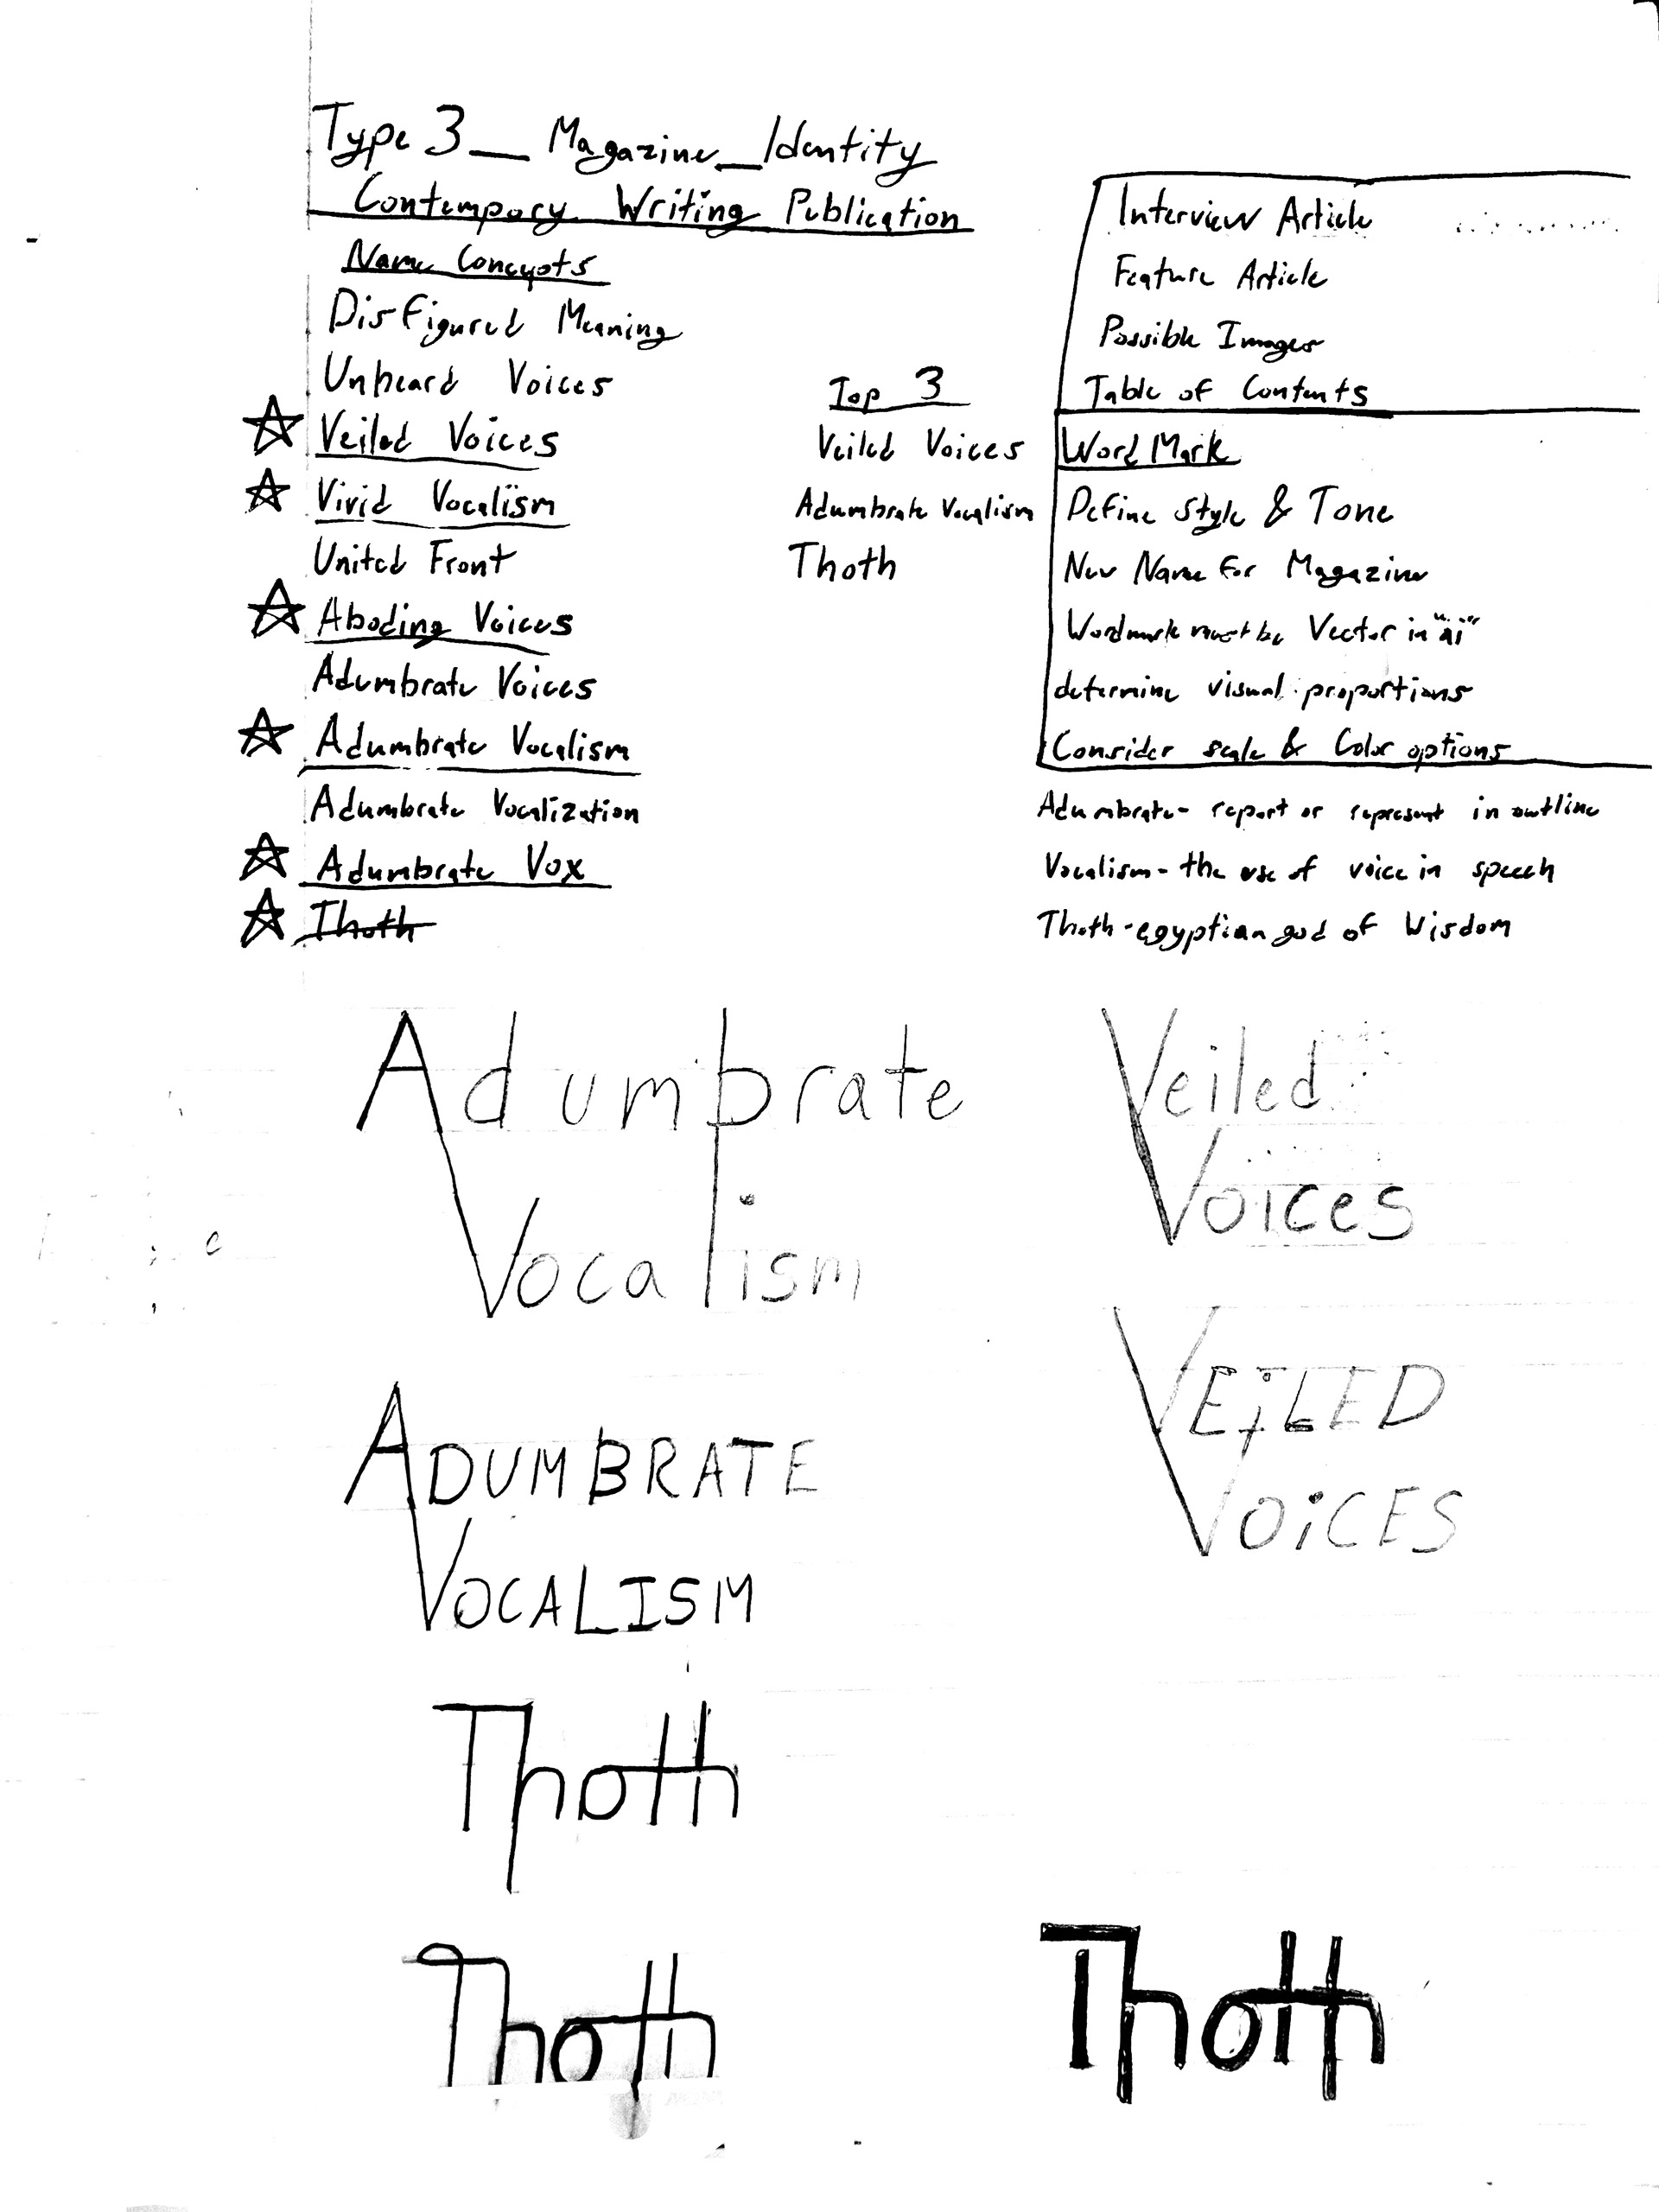 Type 3_ Magazine_Identity
Contempory Writing Publication
Name Concepts
Disfigured Meaning
Unheard Voices
Veiled Voices
Vivid Vocalism
United Front
Aboding Voices
Adumbrate Voices
Adumbrate Vocalism
Adumbrate Vocalization
Adumbrate Vox
Thoth
Top 3
Veiled Voices
Adumbrate Vocalism
Thoth
Interview Article
Feature Article
Possible Images
Table of Contents
Word Mark
Define Style & Tone
New Name for Magazine
Wordmark must be Vector in "ai"
determine visual proportions
Consider scale & Color options
Adumbrate - report or represent in outline
Vocalism - the use of voice in speech
Thoth - egyptian god of Wisdom
Adumbrate
Vocalism
Veiled
Voices
ADUMBRATE
VOCALISM
VEiLED
VOiCES
Thoth
Thoth
Thoth